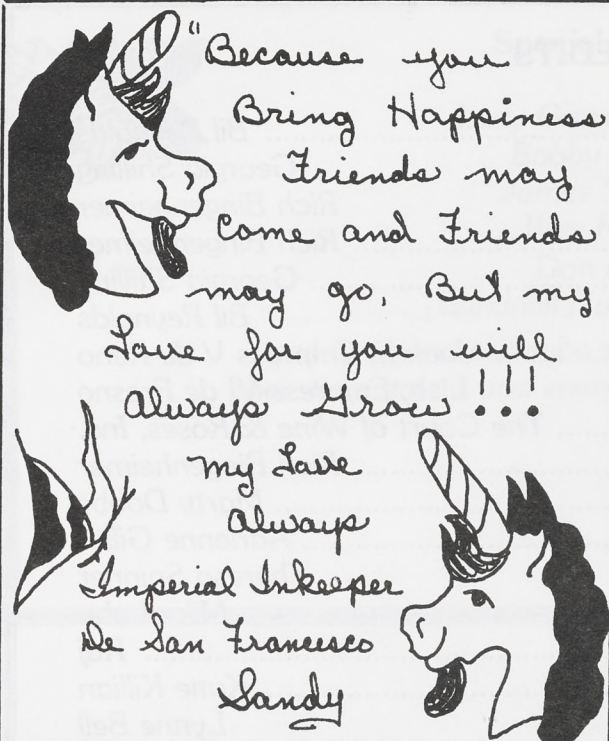 "Because you
Bring Happiness
Friends may
Come and Friends
may go, But my
Love for you will
Always Grow !!!
My Love
Always
Imperial Inkeeper
De San Francesco
Sandy